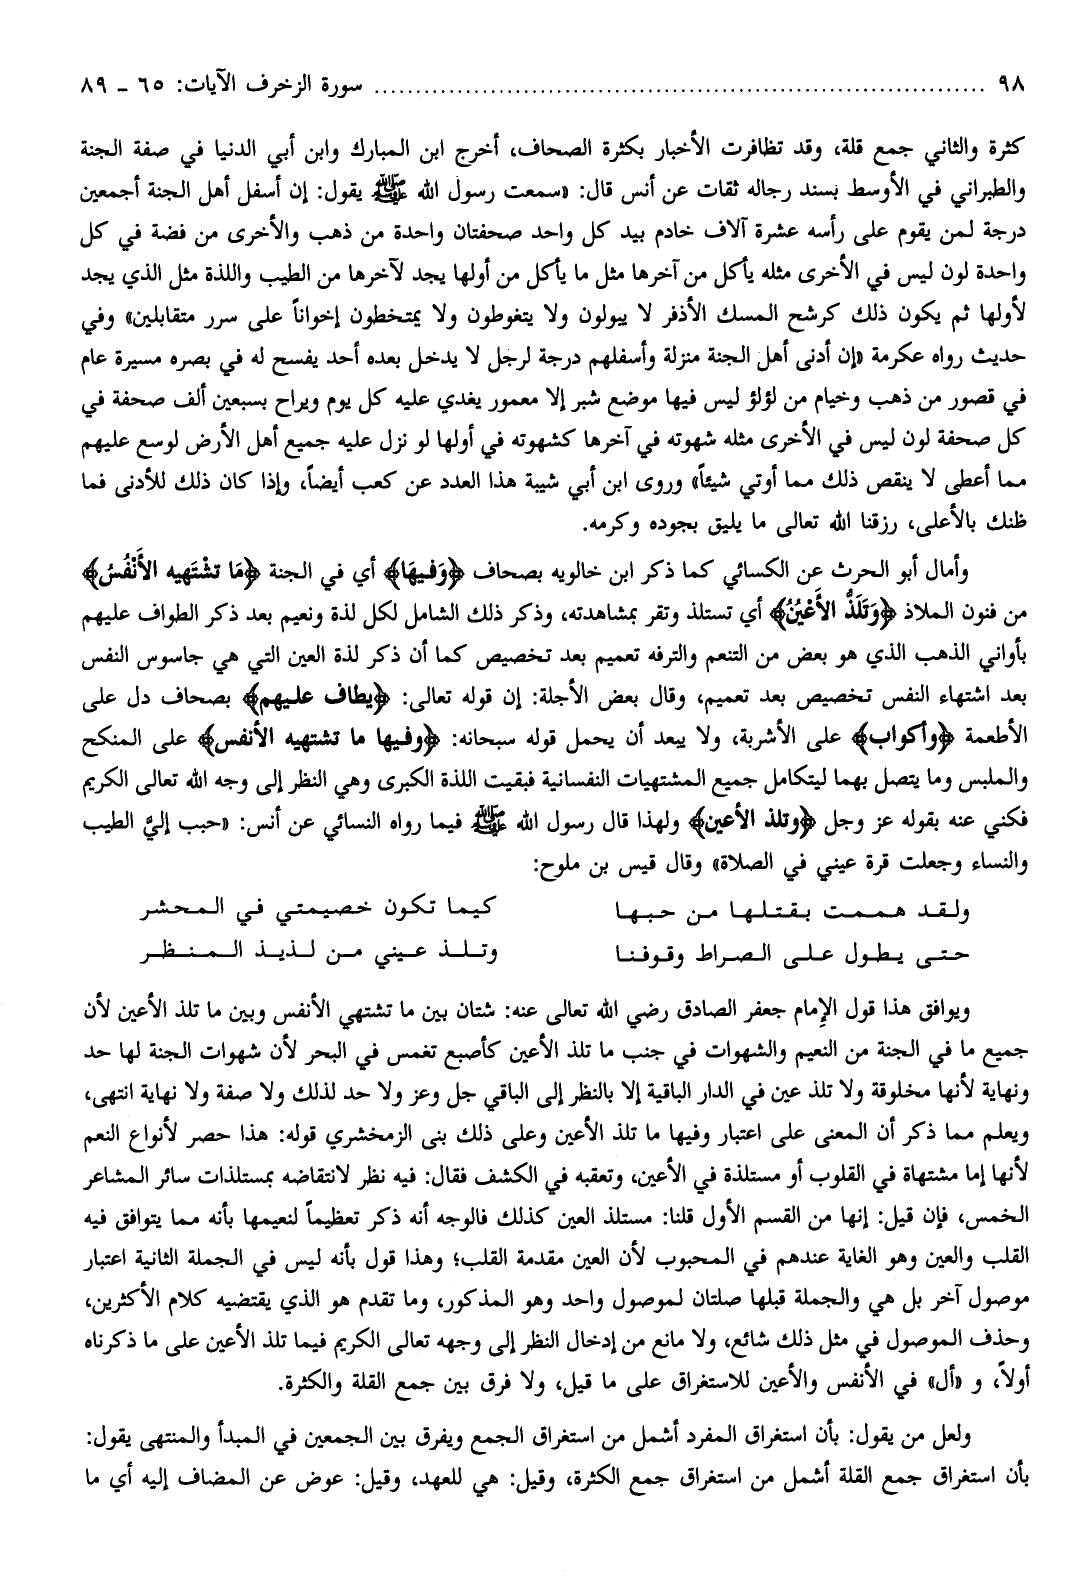 ٩٨ ........................................................................ سورة الزخرف الآيات: ٦٥ ـ ٨٩
كثرة والثاني جمع قلة، وقد تظافرت الأخبار بكثرة الصحاف، أخرج ابن المبارك وابن أبي الدنيا في صفة الجنة
والطبراني في الأوسط بسند رجاله ثقات عن أنس قال: «سمعت رسول الله ﷺ يقول: إن أسفل أهل الجنة أجمعين
درجة لمن يقوم على رأسه عشرة آلاف خادم بيد كل واحد صحفتان واحدة من ذهب والأخرى من فضة في كل
واحدة لون ليس في الأخرى مثله يأكل من آخرها مثل ما يأكل من أولها يجد لآخرها من الطيب واللذة مثل الذي يجد
لأولها ثم يكون ذلك كرشح المسك الأذفر لا يبولون ولا يتغوطون ولا يمتخطون إخواناً على سرر متقابلين» وفي
حديث رواه عكرمة «إن أدنى أهل الجنة منزلة وأسفلهم درجة لرجل لا يدخل بعده أحد يفسح له في بصره مسيرة عام
في قصور من ذهب وخيام من لؤلؤ ليس فيها موضع شبر إلا معمور يغدي عليه كل يوم ويراح بسبعين ألف صحفة في
كل صحفة لون ليس في الأخرى مثله شهوته في آخرها كشهوته في أولها لو نزل عليه جميع أهل الأرض لوسع عليهم
مما أعطى لا ينقص ذلك مما أوتي شيئاً» وروى ابن أبي شيبة هذا العدد عن كعب أيضاً، وإذا كان ذلك للأدنى فما
ظنك بالأعلى، رزقنا الله تعالى ما يليق بجوده وكرمه.
وأمال أبو الحرث عن الكسائي كما ذكر ابن خالويه بصحاف ﴿وَفيهَا﴾ أي في الجنة ﴿مَا تشْتَهيه الأَنْفُسُ﴾
من فنون الملاذ ﴿وَتَلَذُّ الأَعْيُنُ﴾ أي تستلذ وتقر بمشاهدته، وذكر ذلك الشامل لكل لذة ونعيم بعد ذكر الطواف عليهم
بأواني الذهب الذي هو بعض من التنعم والترفه تعميم بعد تخصيص كما أن ذكر لذة العين التي هي جاسوس النفس
بعد اشتهاء النفس تخصيص بعد تعميم، وقال بعض الأجلة: إن قوله تعالى: ﴿يطاف عليهم﴾ بصحاف دل على
الأطعمة ﴿وأكواب﴾ على الأشربة، ولا يبعد أن يحمل قوله سبحانه: ﴿وفيها ما تشتهيه الأنفس﴾ على المنكح
والملبس وما يتصل بهما ليتكامل جميع المشتهيات النفسانية فبقيت اللذة الكبرى وهي النظر إلى وجه الله تعالى الكريم
فكني عنه بقوله عز وجل ﴿وتلذ الأعين﴾ ولهذا قال رسول الله ﷺ فيما رواه النسائي عن أنس: «حبب إليَّ الطيب
والنساء وجعلت قرة عيني في الصلاة» وقال قيس بن ملوح:
ولقد هممت بقتلها من حبها كيما تكون خصيمتي في المحشر
حتى يطول على الصراط وقوفنا وتلذ عيني من لذيذ المنظر
ويوافق هذا قول الإمام جعفر الصادق رضي الله تعالى عنه: شتان بين ما تشتهي الأنفس وبين ما تلذ الأعين لأن
جميع ما في الجنة من النعيم والشهوات في جنب ما تلذ الأعين كأصبع تغمس في البحر لأن شهوات الجنة لها حد
ونهاية لأنها مخلوقة ولا تلذ عين في الدار الباقية إلا بالنظر إلى الباقي جل وعز ولا حد لذلك ولا صفة ولا نهاية انتهى،
ويعلم مما ذكر أن المعنى على اعتبار وفيها ما تلذ الأعين وعلى ذلك بنى الزمخشري قوله: هذا حصر لأنواع النعم
لأنها إما مشتهاة في القلوب أو مستلذة في الأعين، وتعقبه في الكشف فقال: فيه نظر لانتقاضه بمستلذات سائر المشاعر
الخمس، فإن قيل: إنها من القسم الأول قلنا: مستلذ العين كذلك فالوجه أنه ذكر تعظيماً لنعيمها بأنه مما يتوافق فيه
القلب والعين وهو الغاية عندهم في المحبوب لأن العين مقدمة القلب؛ وهذا قول بأنه ليس في الجملة الثانية اعتبار
موصول آخر بل هي والجملة قبلها صلتان لموصول واحد وهو المذكور، وما تقدم هو الذي يقتضيه كلام الأكثرين،
وحذف الموصول في مثل ذلك شائع، ولا مانع من إدخال النظر إلى وجهه تعالى الكريم فيما تلذ الأعين على ما ذكرناه
أولاً، و «أل» في الأنفس والأعين للاستغراق على ما قيل، ولا فرق بين جمع القلة والكثرة.
ولعل من يقول: بأن استغراق المفرد أشمل من استغراق الجمع ويفرق بين الجمعين في المبدأ والمنتهى يقول:
بأن استغراق جمع القلة أشمل من استغراق جمع الكثرة، وقيل: هي للعهد، وقيل: عوض عن المضاف إليه أي ما